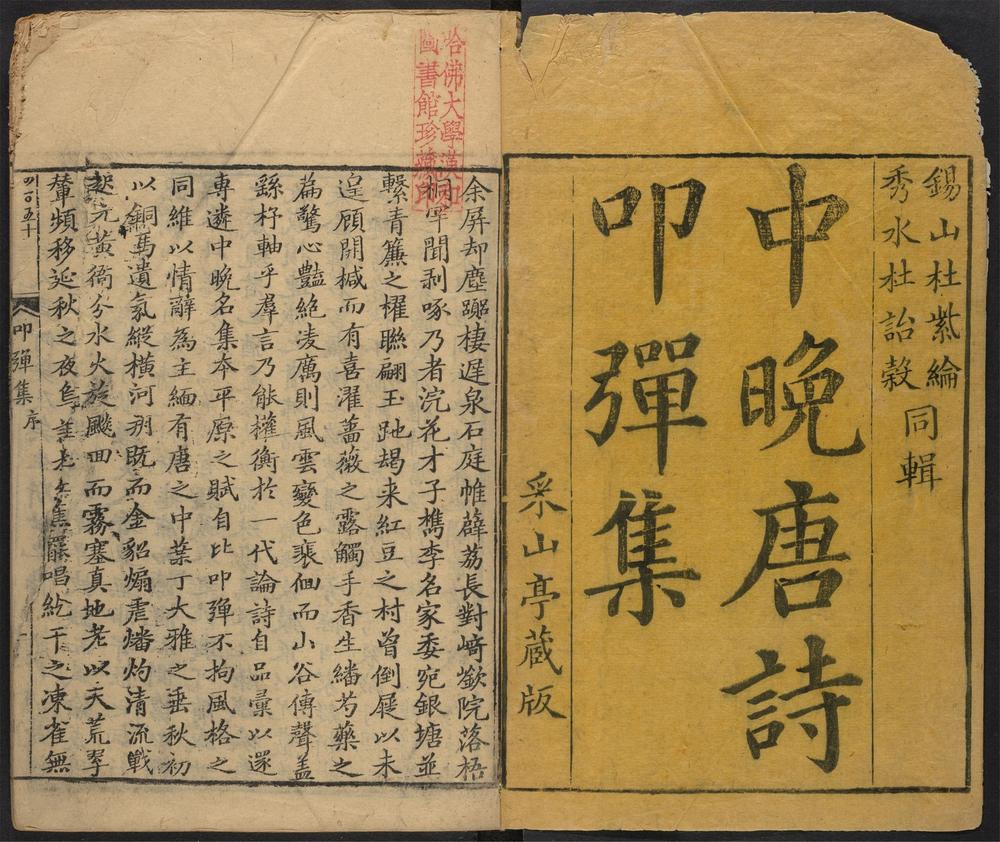 錫山杜紫綸
秀水杜詒榖
同輯
中晚唐詩
叩彈集
采山亭蔵版
哈佛大學漢和
圖書館珍藏印
余屏却塵踪棲遲泉石庭帷薜荔長對﨑嶔院落梧
桐罕聞剥啄乃者浣花才子檇李名家委宛銀塘並
繫青簾之櫂聯翩玉虵朅来紅豆之村曾倒屣以未
遑顧開椷而有喜濯薔薇之露觸手香生繙芍藥之
篇驚心豔絶凌厲則風雲變色裵佪而山谷傳聲盖
繇杼軸乎羣言乃能權衡於一代論詩自品彙以還
專遴中晚名集夲平原之賦自比叩彈不拘風格之
同維以情辭為主緬有唐之中葉丁大雅之垂秋初
以銅馬遺氛縱橫河朔既而金貂煽虐燔灼清流戰
起元黄衙分水火旋飈回而霧塞真地老以天荒翠
輦頻移延秋之夜烏 罷唱紇干之凍雀無
叩彈集
序